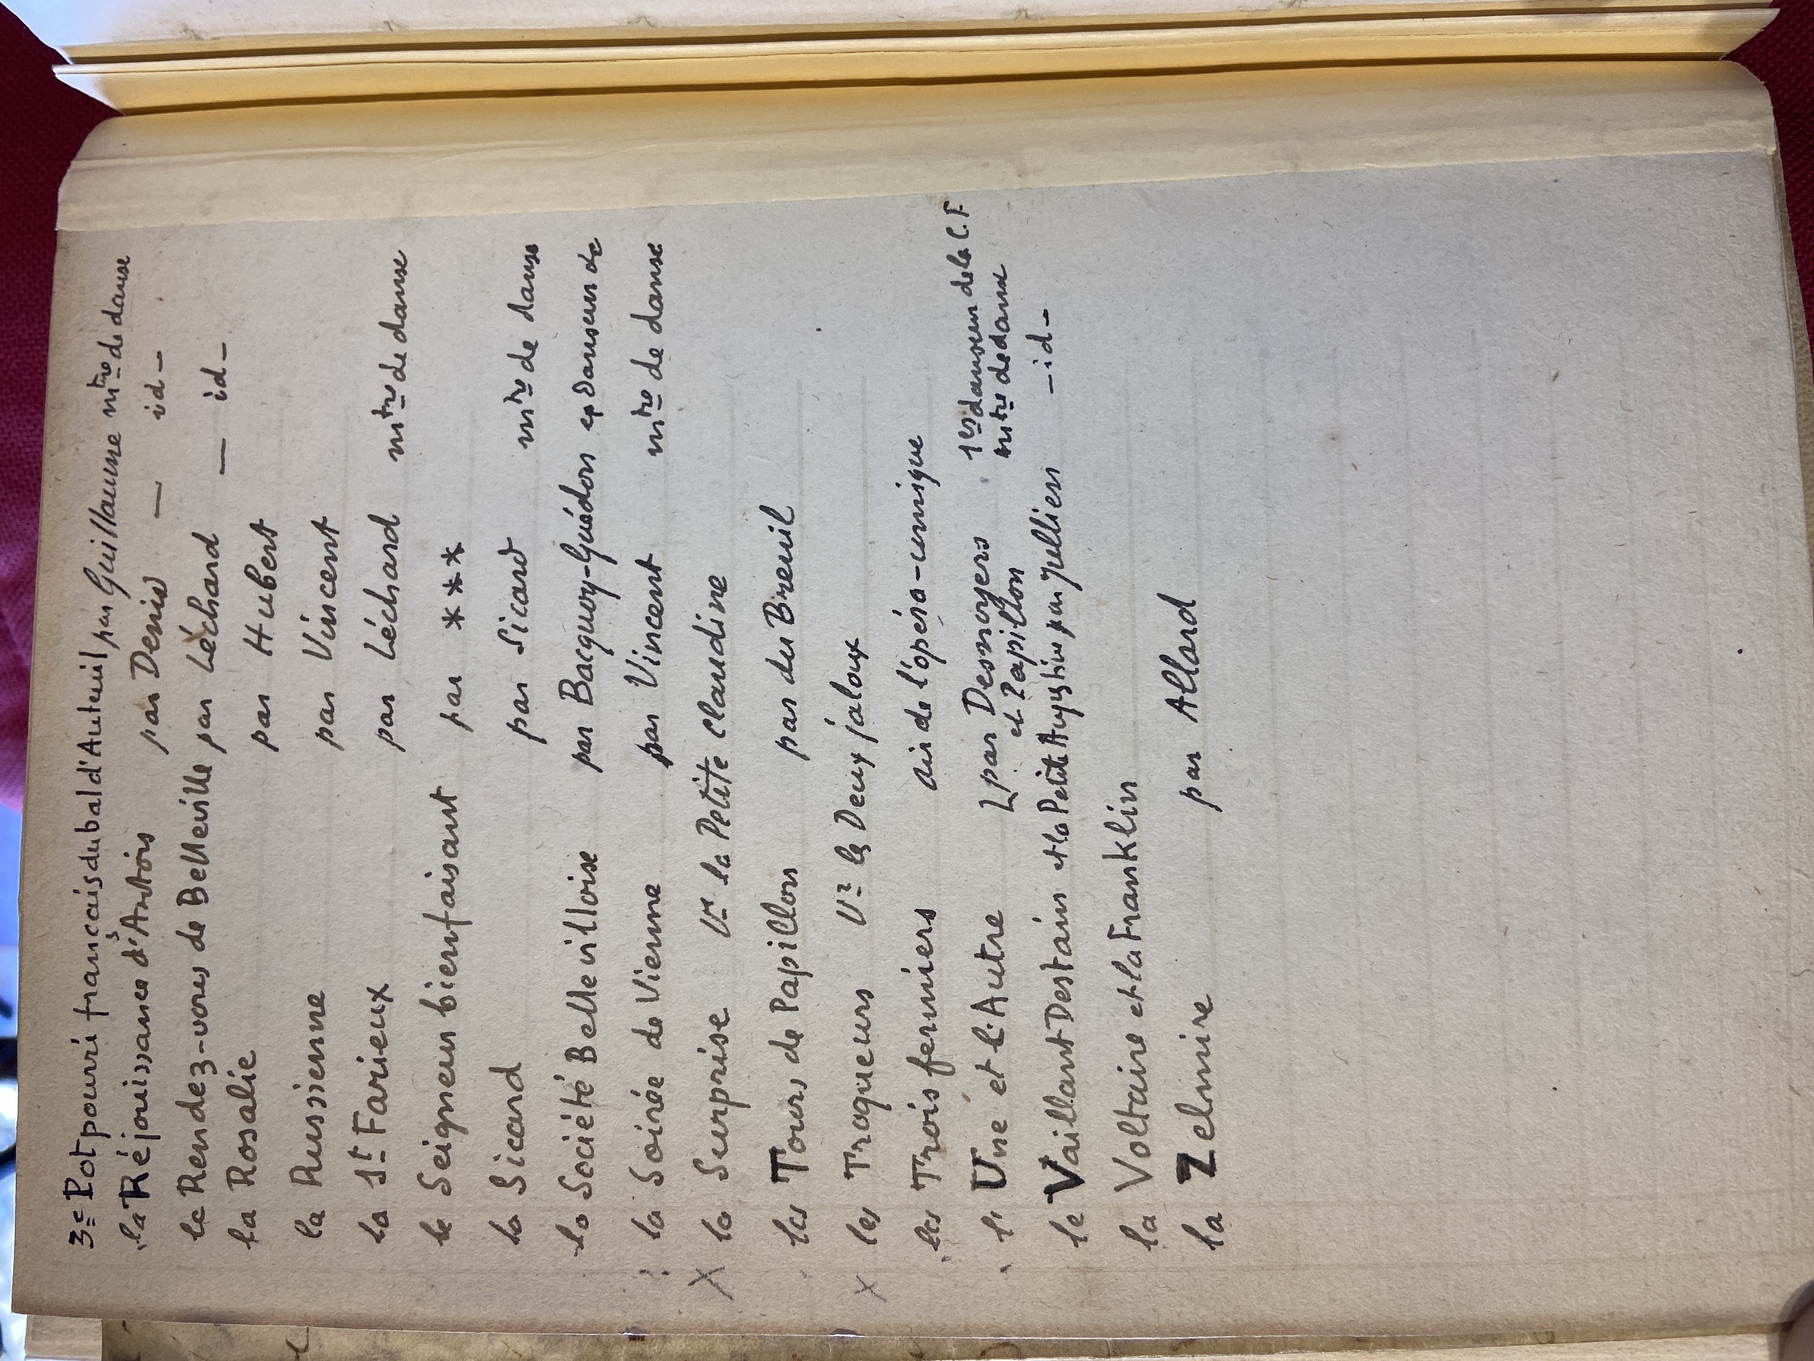 3e Potpourri français du bal d'Auteuil par Guillaume mtre de danse
la Réjouissance d'Artois par Denis — id-
le Rendez-vous de Belleville par Léchard — id-
la Rosalie par Hubert
la Russienne par Vincent
la St Farieux par Léchard mtre de danse
le Seigneur bienfaisant par ***
la Sicard par Sicard mtre de danse
la Société Bellevilloise par Bacquoy-Guédon danseur de
? la Soirée de Vienne par Vincent mtre de danse
X la Surprise Vr la Petite Claudine
les Tours de Papillon par du Breuil
x les Traqueurs Vr les Deux jaloux
les Trois fermiers air de l'opéra-comique
l' Une et l'Autre par Desnoyers 1er danseur de la C.F
et Papillon mtre de danse
le Vaillant Destain et la Petite Augustine par Jullien -id-
la Voltaire et la Franklin
la Zelmire par Allard